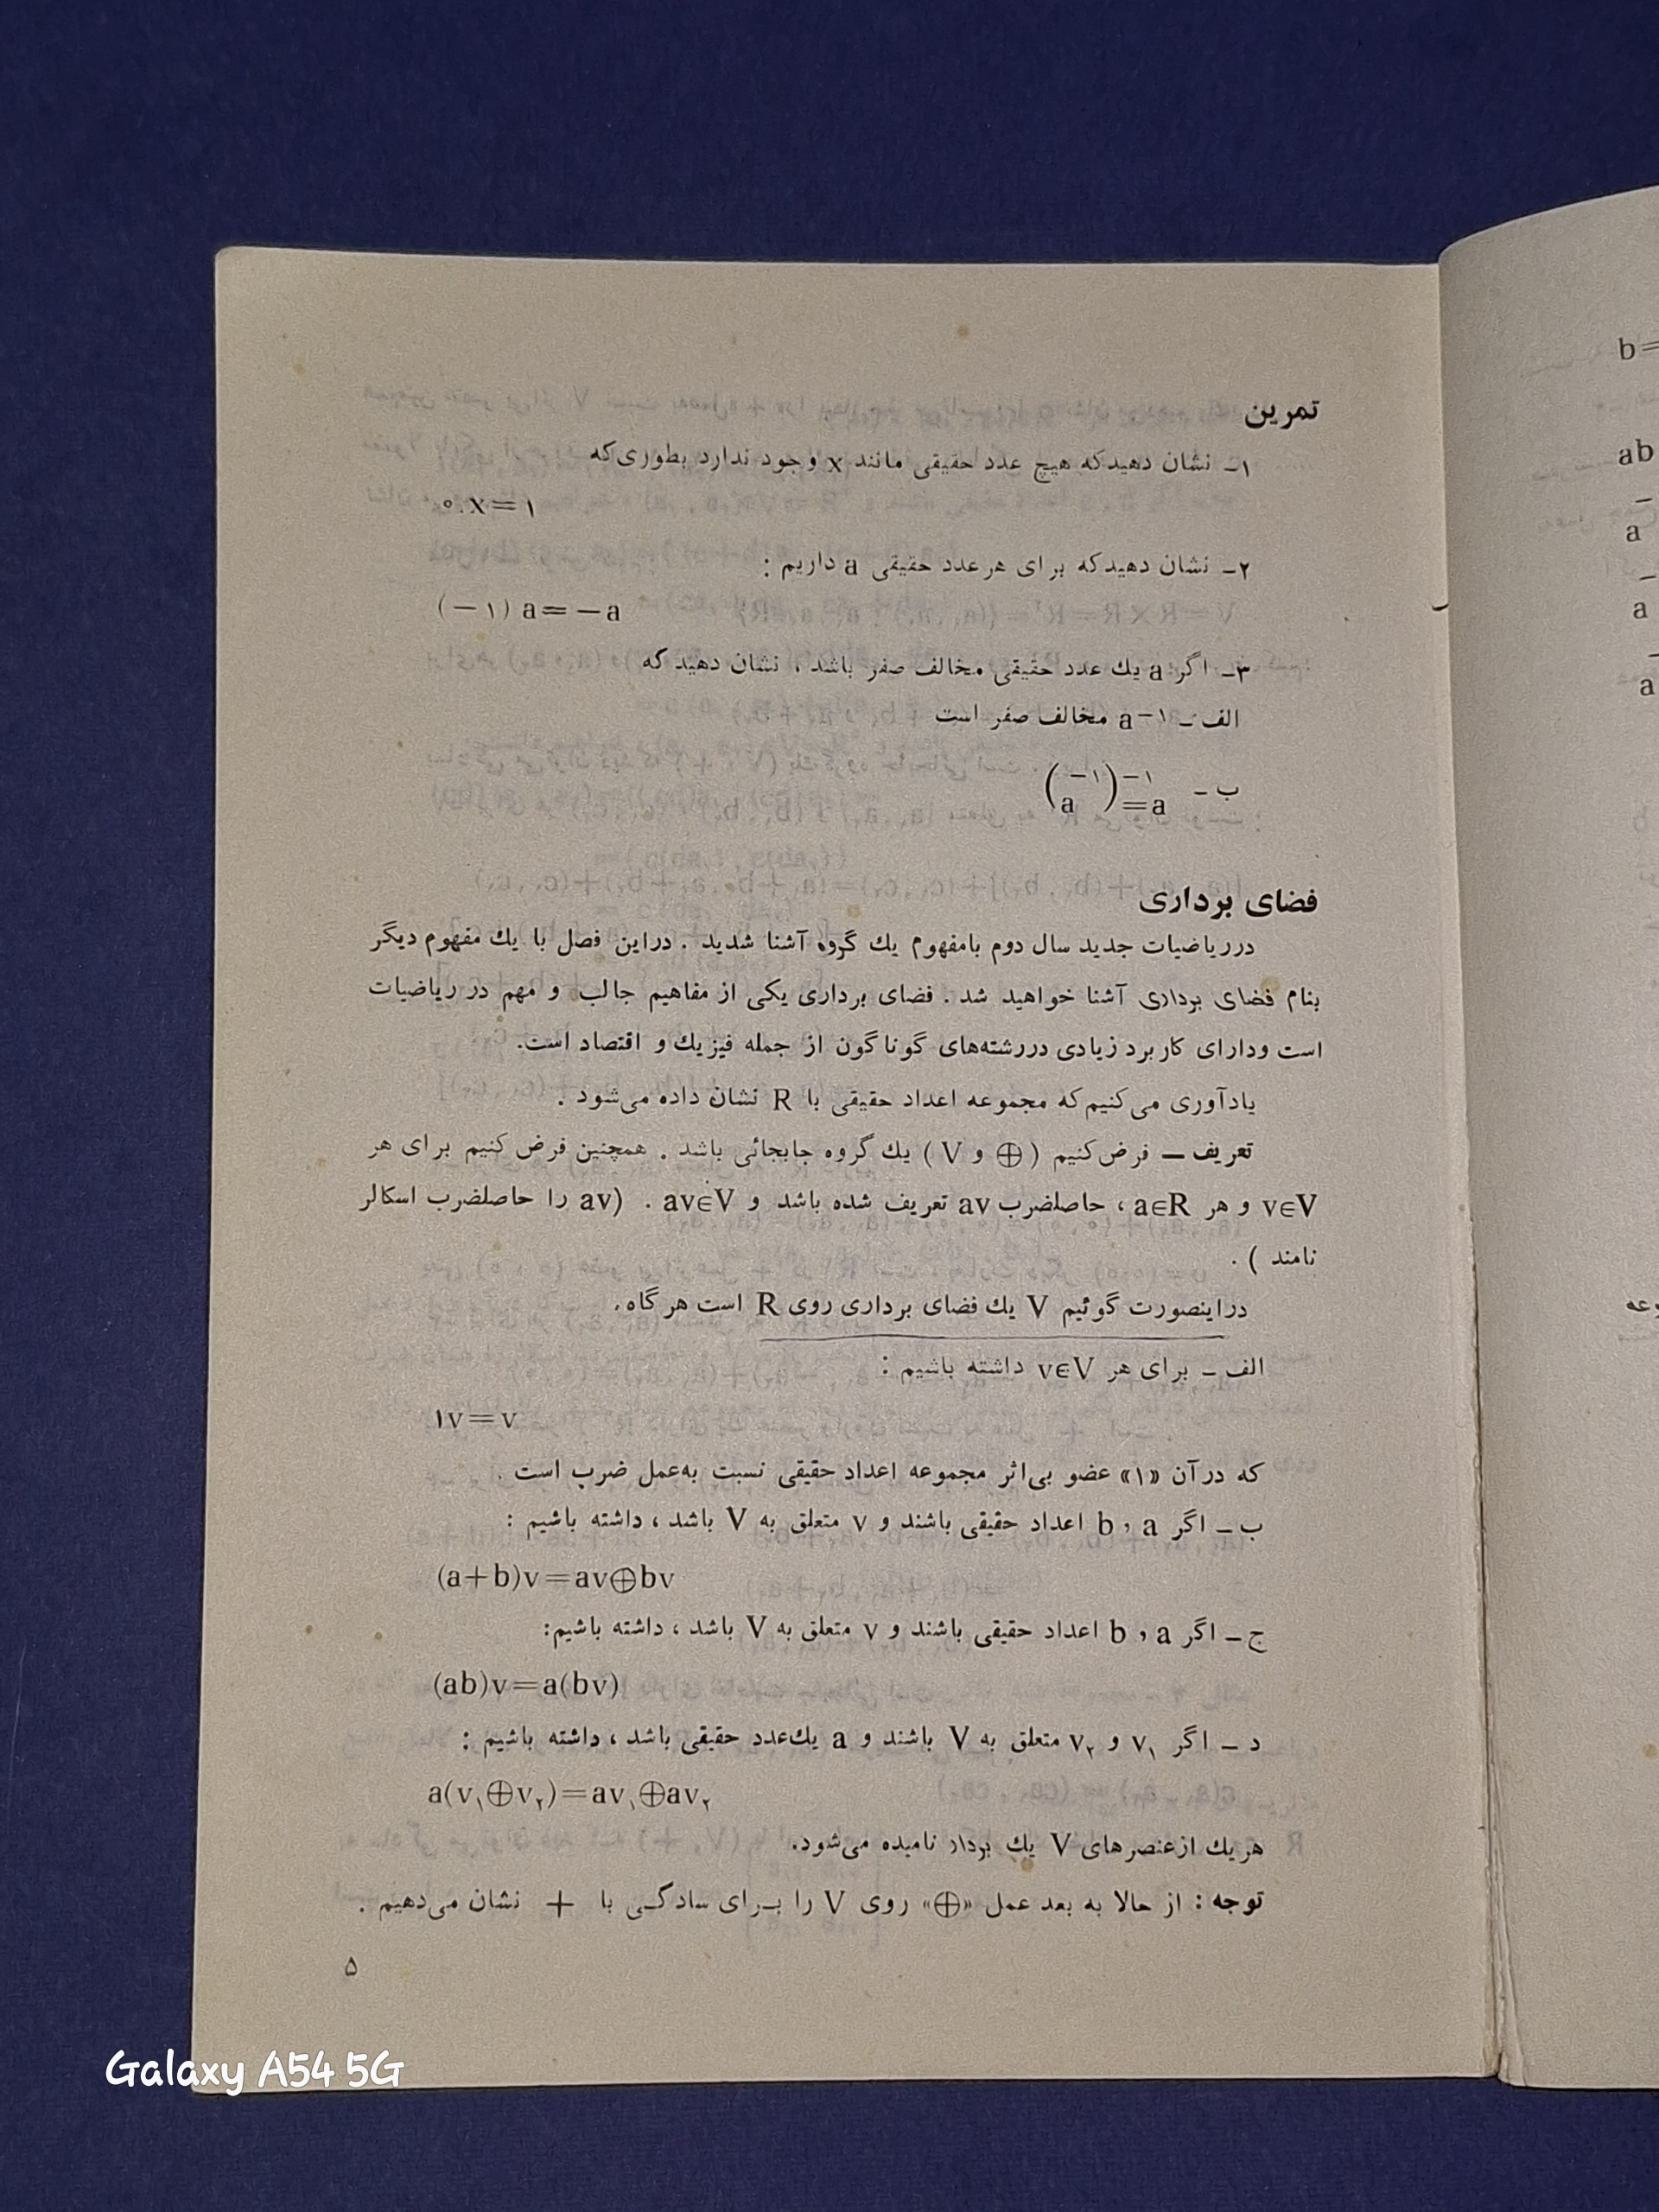 تمرین
۱ـ نشان دهیدکه هیچ عدد حقیقی مانند x وجود ندارد بطوری‌که
۰.x=۱
۲ـ نشان دهیدکه برای هرعدد حقیقی a داریم :
(−۱) a=−a
۳ـ اگر a یك عدد حقیقی مخالف صفر باشد ، نشان دهید که
الف ـ a−۱ مخالف صفر است
ب ـ (a−۱)−۱=a
فضای برداری
درریاضیات جدید سال دوم بامفهوم یك گروه آشنا شدید . دراین فصل با یك مفهوم دیگر
بنام فضای برداری آشنا خواهید شد . فضای برداری یکی از مفاهیم جالب و مهم در ریاضیات
است ودارای کاربرد زیادی دررشته‌های گوناگون از جمله فیزیك و اقتصاد است.
یادآوری می‌کنیم‌که مجموعه اعداد حقیقی با R نشان داده می‌شود .
تعریف ــ فرض‌کنیم (⊕ و V) یك گروه جابجائی باشد . همچنین فرض کنیم برای هر
v∈V و هر a∈R ، حاصلضرب av تعریف شده باشد و av∈V . (av را حاصلضرب اسکالر
نامند ) .
دراینصورت گوئیم V یك فضای برداری روی R است هرگاه.
الف ـ برای هر v∈V داشته باشیم :
۱v=v
که درآن «۱» عضو بی‌اثر مجموعه اعداد حقیقی نسبت به‌عمل ضرب است .
ب ـ اگر a و b اعداد حقیقی باشند و v متعلق به V باشد ، داشته باشیم :
(a+b)v=av⊕bv
ج ـ اگر a و b اعداد حقیقی باشند و v متعلق به V باشد ، داشته باشیم:
(ab)v=a(bv)
د ـ اگر v۱ و v۲ متعلق به V باشند و a یك‌عدد حقیقی باشد ، داشته باشیم :
a(v۱⊕v۲)=av۱⊕av۲
هریك ازعنصرهای V یك بردار نامیده می‌شود.
توجه : از حالا به بعد عمل «⊕» روی V را بـرای سادگـی با + نشان می‌دهیم .
۵
b=
ab
a
a
a
Galaxy A54 5G